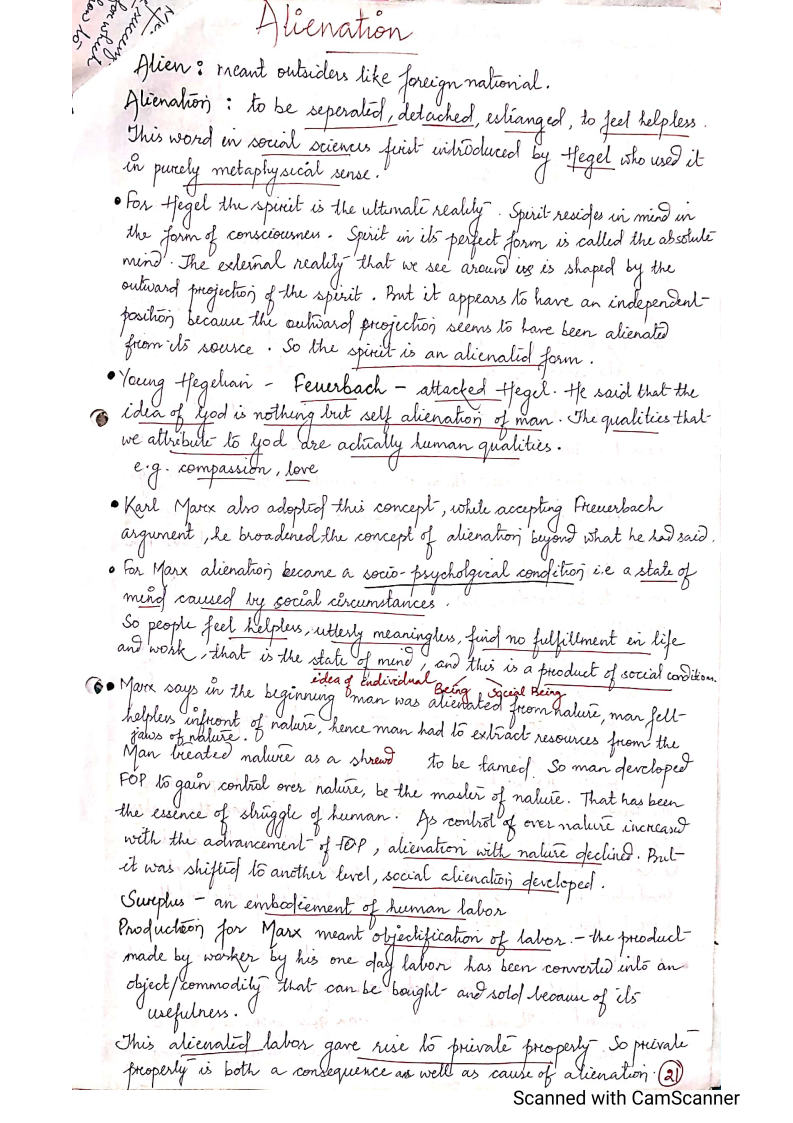 Alienation
Alien : meant outsiders like foreign national.
Alienation : to be seperated, detached, estranged, to feel helpless.
This word in social sciences first introduced by Hegel who used it
in purely metaphysical sense.
• For Hegel the spirit is the ultimate reality. Spirit resides in mind in
the form of consciousness. Spirit in its perfect form is called the absolute
mind. The external reality that we see around us is shaped by the
outward projection of the spirit. But it appears to have an independent
position because the outward projection seems to have been alienated
from its source. So the spirit is an alienated form.
• Young Hegelian - Feuerbach - attacked Hegel. He said that the
idea of God is nothing but self alienation of man. The qualities that
we attribute to God are actually human qualities.
e.g. compassion, love
• Karl Marx also adopted this concept, while accepting Freuerbach
argument, he broadened the concept of alienation beyond what he had said.
• For Marx alienation became a socio-psycholgical condition i.e a state of
mind caused by social circumstances.
So people feel helpless, utterly meaningless, find no fulfillment in life
and work, that is the state of mind, and this is a product of social condition.
idea of individual Being Social Being
• Marx says in the beginning man was alienated from nature, man felt
helpless infront of nature, hence man had to extract resources from the
jaws of nature.
Man treated nature as a shrewd to be tamed. So man developed
FOP to gain control over nature, be the master of nature. That has been
the essence of struggle of human. As control of over nature increased
with the advancement of FOP, alienation with nature declined. But
it was shifted to another level, social alienation developed.
Surplus - an embodiement of human labor
Production for Marx meant objectification of labor - the product
made by worker by his one day labor has been converted into an
object/commodity that can be bought and sold because of its
usefulness.
This alienated labor gave rise to private property. So private
property is both a consequence as well as cause of alienation. 21
Scanned with CamScanner